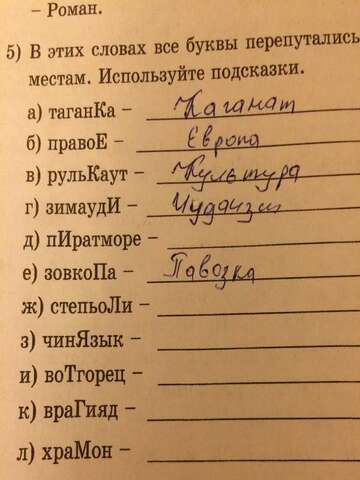 – Роман.
5) В этих словах все буквы перепутались
местам. Используйте подсказки.
а) таганКа – Каганат
б) правоЕ – Европа
в) рульКаут – Культура
г) зимаудИ – Иудаизм
д) пИратморе –
е) зовкоПа – Павозка
ж) степьоЛи –
з) чинЯзык –
и) воТгорец –
к) враГияд –
л) храМон –